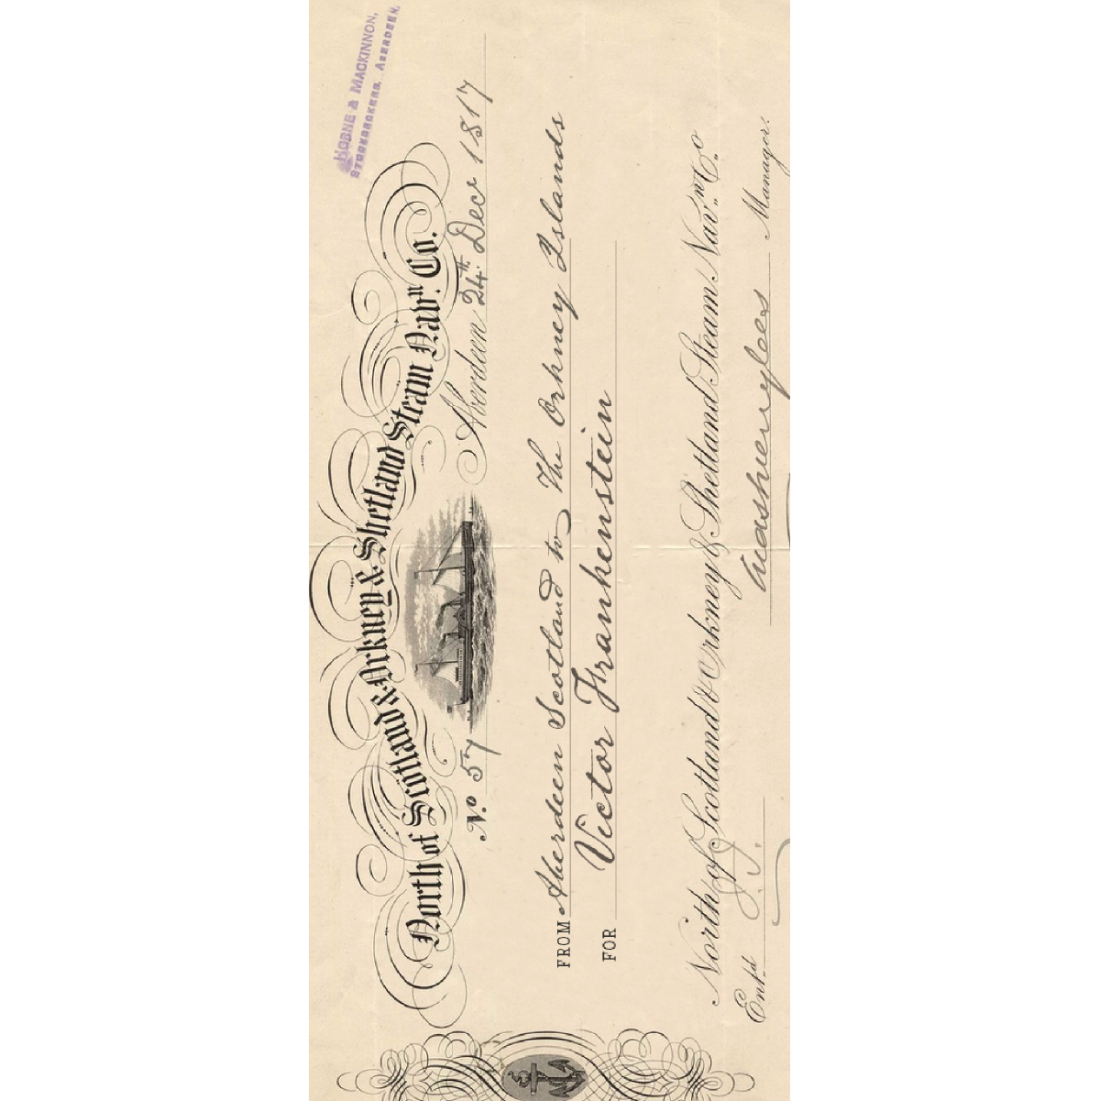 HORNE & MACKINNON,
STOCKBROKERS, ABERDEEN.
North of Scotland & Orkney & Shetland Steam Navⁿ. Co.
Nº 57 Aberdeen 24th Decr 1817
FROM Aberdeen Scotland to The Orkney Islands
FOR Victor Frankenstein
North of Scotland & Orkney & Shetland Steam Navⁿ. Co.
Entd. Manager.